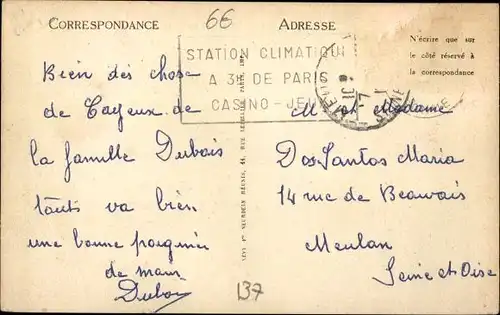 CORRESPONDANCE
66
ADRESSE
N'écrire que sur
le côté réservé à
la correspondance
STATION CLIMATIQUE
A 3H DE PARIS
CASINO - JEUX
Bien des chose
de Cayeux de
la famille Dubois
touts va bien
une bonne pougnie
de main
Dubois
M et Madame
Dos Santos Maria
14 rue de Beauvais
Meulan
Seine et Oise
137